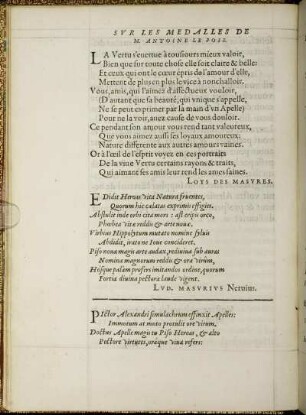 SVR LES MEDALLES DE
M. ANTOINE LE POIS.
LA Vertu s'euertue à tousiours mieux valoir,
Bien que sur toute chose elle soit claire & belle:
Et ceux qui ont le cœur épris de l'amour d'elle,
Mettent de plus en plus le vice à nonchalloir.
Vous, amis, qui l'aimez d'affectueux vouloir,
D'autant que sa beauté, qui vnique s'appelle,
Ne se peut exprimer par la main d'vn Apelle,
Pour ne la voir, auez cause de vous douloir.
Ce pendant son amour vous rend tant valeureux,
Que vous aimez aussi ses loyaux amoureux,
Nature differente aux autres amours vaines.
Or à l'œil de l'esprit voyez en ces portraits
De la viue Vertu certains rayons & traits,
Qui aimant ses amis leur rend les ames saines.
LOYS DES MASVRES.
EDidit Heroas vita Natura fruentes,
Quorum hic cælatas exprimis effigies.
Abstulit inde orbi cita mors: ast eripis orco,
Phœbea vitæ reddis & arte nouæ.
Virbius Hippolytum mutato nomine syluis
Abdidit, irato ne Ioue concideret.
Piso noua magis arte audax, rediuiua sub auras
Nomina magnorum reddis & ora virûm,
Hosque palàm profers imitandos ordine, quorum
Fortia diuina pectora laude vigent.
LVD. MASVRIVS Neruius.
PIctor Alexandri simulachrum effinxit Apelles:
Immotum at motu prætulit ore virum.
Doctus Apelle magis tu Piso Heroas, & alto
Pectore virtutes, oráque viua refers: